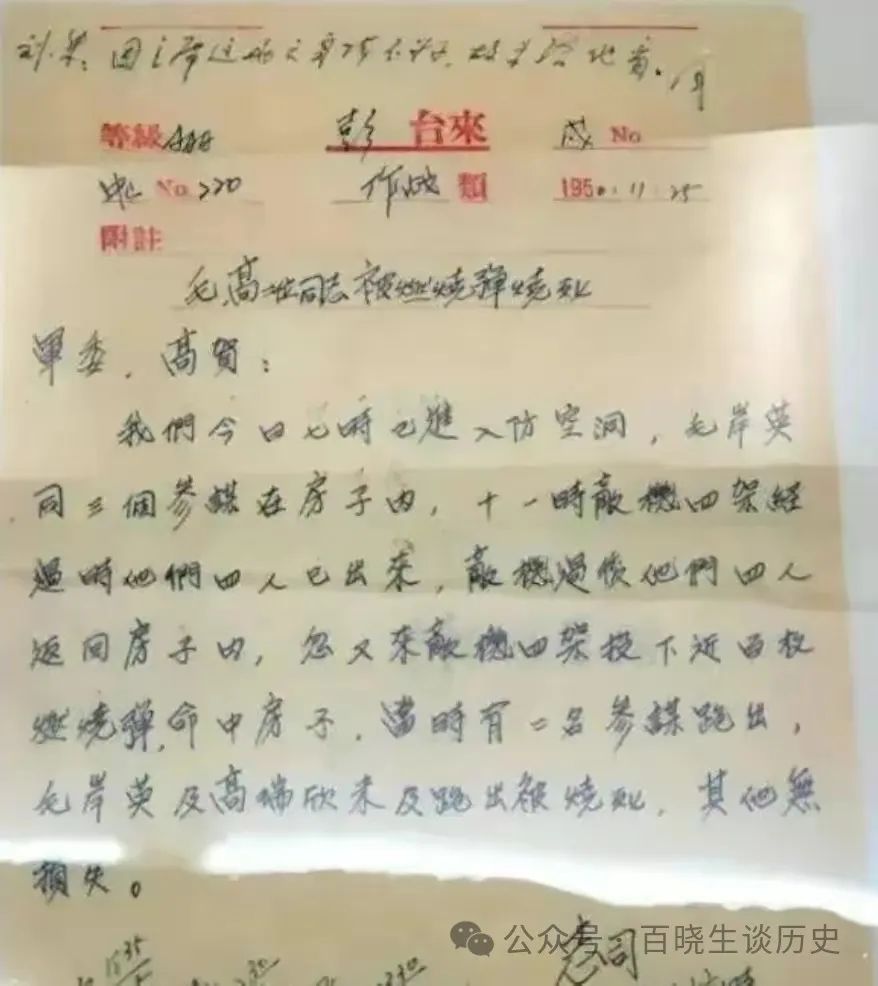 刘、
等級AAAA 彭 台來 成 No
No 220 作戰 類 1950.11.25
附註
毛、高二同志被燃燒彈燒死
軍委，高賀：
我們今日七時已進入防空洞，毛岸英
同三個參謀在房子内，十一時敵機四架經
過時他們四人已出來，敵機過後他們四人
返回房子内，忽又來敵機四架投下近百枚
燃燒彈，命中房子，當時有二名參謀跑出，
毛岸英及高瑞欣未及跑出被燒死，其他無
損失。
志司
公众号·百晓生谈历史